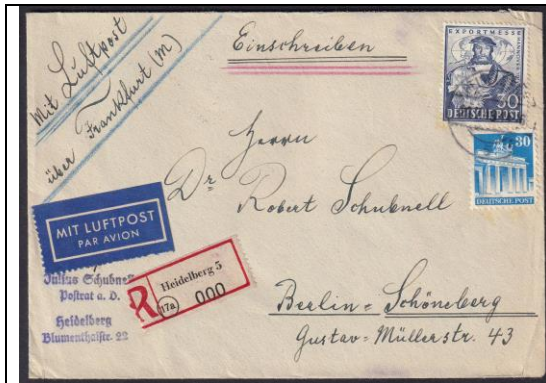 Mit Luftpost
über Frankfurt (M)
Einschreiben
EXPORTMESSE
30
DEUTSCHE POST
30
DEUTSCHE POST
Herrn
Dr. Robert Schubnell
MIT LUFTPOST
PAR AVION
Julius Schubnell
Postrat a. D.
Heidelberg
Blumenthalstr. 22
R
Heidelberg 5
(17a) 000
Berlin-Schöneberg
Gustav-Müllerstr. 43